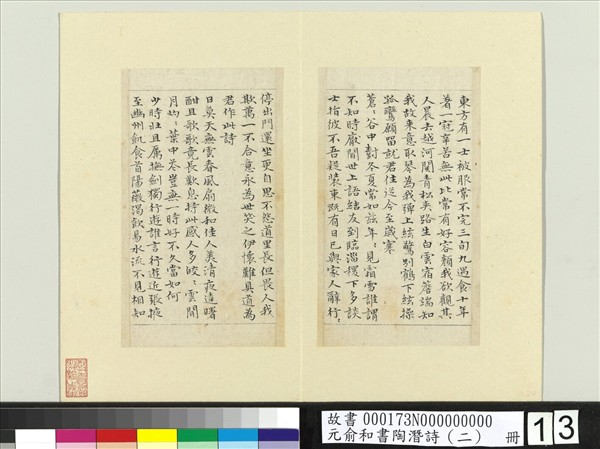 東方有一士被服常不完三旬九遇食十年
著一冠辛苦無此比常有好容顏我欲觀其
人晨去越河關青松夾路生白雲宿簷端知
我故來意取琴為我彈上絃驚別鶴下絃操
孤鸞願留就君住從今至歲寒
蒼〻谷中樹冬夏常如茲年〻見霜雪誰謂
不知時厭聞世上語結友到臨淄稷下多談
士指彼決吾疑裝束既有日已與家人辭行〻
停出門還坐更自思不怨道里長但畏人我
欺萬一不合意永為世笑之伊懷難具道為
君作此詩
日暮天無雲春風扇微和佳人美清夜達曙
酣且歌歌竟長歎息持此感人多皎〻雲間
月灼〻葉中花豈無一時好不久當如何
少時壯且厲撫劍獨行遊誰言行遊近張掖
至幽州飢食首陽薇渴飲易水流不見相知
故書000173N000000000
元俞和書陶潛詩(二) 冊
13